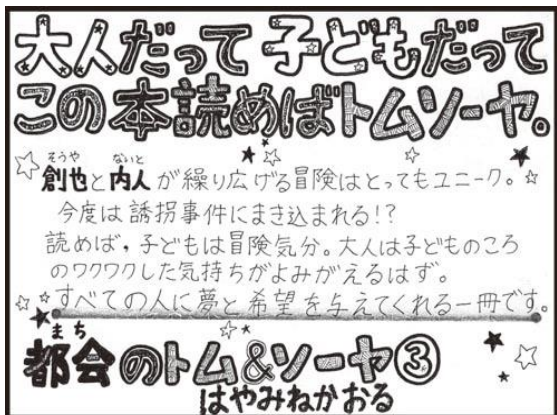 大人だって子どもだって
この本読めばトムソーヤ。
そうや ないと
創也と内人が繰り広げる冒険はとってもユニーク。
今度は誘拐事件にまき込まれる!?
読めば,子どもは冒険気分。大人は子どものころ
のワクワクした気持ちがよみがえるはず。
すべての人に夢と希望を与えてくれる一冊です。
まち
都会のトム&ソーヤ③
はやみねかおる